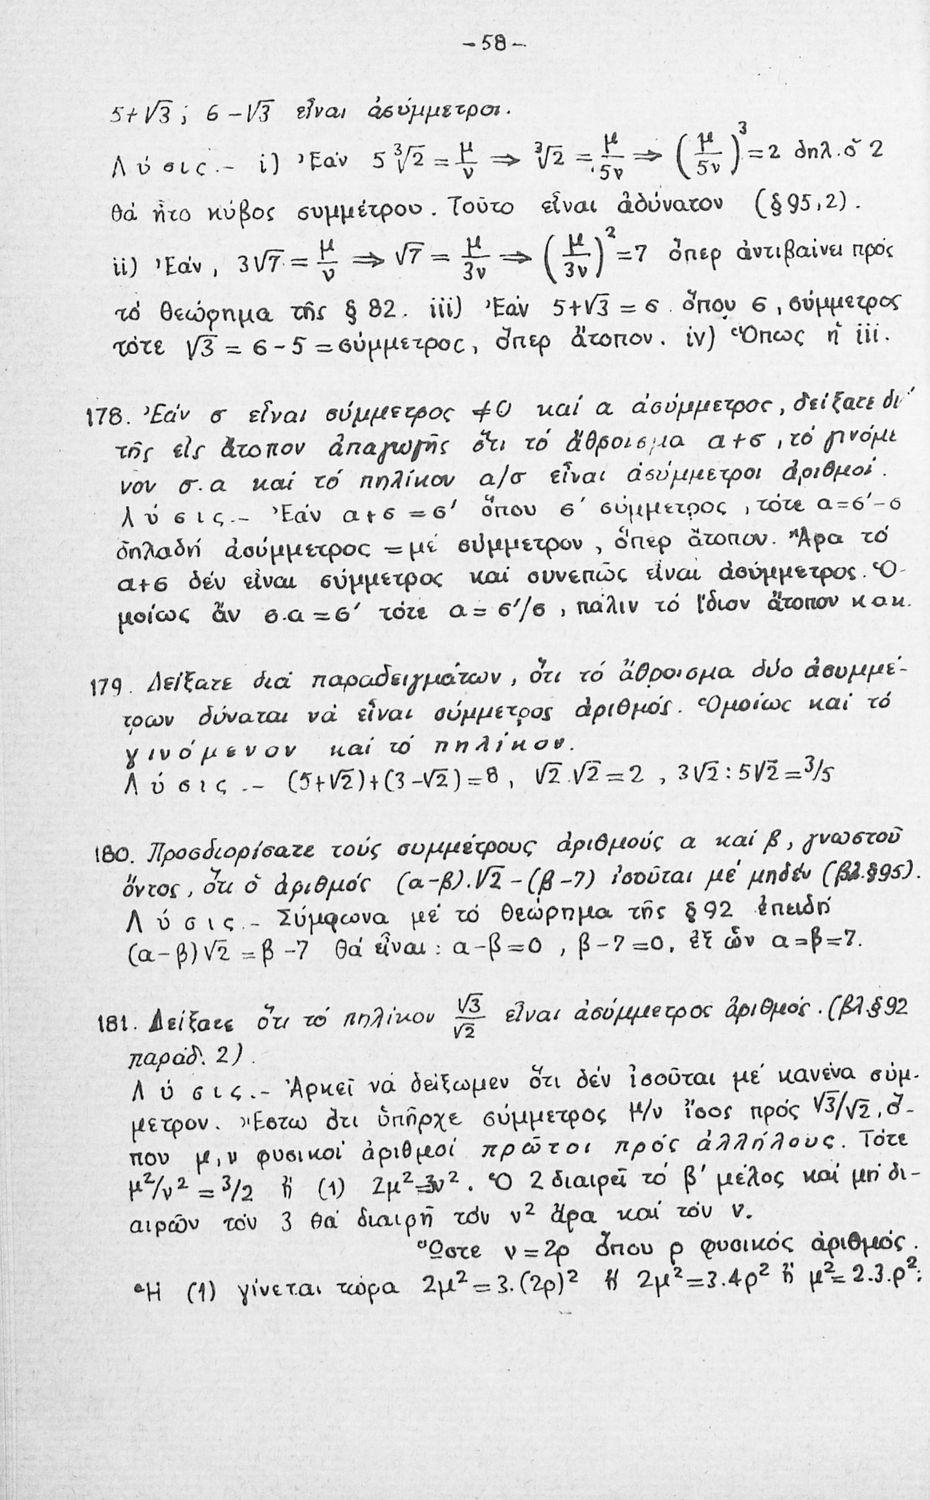 -58-
5+√3 ; 6-√3 εἶναι ἀσύμμετροι.
Λύσις.- i) Ἐάν 5∛2 = μ/ν ⇒ ∛2 = μ/5ν ⇒ (μ/5ν)³ = 2 δηλ. ὁ 2
θά ἦτο κύβος συμμέτρου. Τοῦτο εἶναι ἀδύνατον (§95,2).
ii) Ἐάν, 3√7 = μ/ν ⇒ √7 = μ/3ν ⇒ (μ/3ν)² = 7 ὅπερ ἀντιβαίνει πρός
τό θεώρημα τῆς § 82. iii) Ἐάν 5+√3 = σ ὅπου σ, σύμμετρος
τότε √3 = σ-5 = σύμμετρος, ὅπερ ἄτοπον. iv) Ὅπως ἡ iii.
178. Ἐάν σ εἶναι σύμμετρος ≠0 καί α ἀσύμμετρος, δείξατε δι'
τῆς εἰς ἄτοπον ἀπαγωγῆς ὅτι τό ἄθροισμα α+σ, τό γινόμε
νον σ.α καί τό πηλίκον α/σ εἶναι ἀσύμμετροι ἀριθμοί.
Λύσις.- Ἐάν α+σ = σ' ὅπου σ' σύμμετρος, τότε α=σ'-σ
δηλαδή ἀσύμμετρος = μέ σύμμετρον, ὅπερ ἄτοπον. Ἄρα τό
α+σ δέν εἶναι σύμμετρος καί συνεπῶς εἶναι ἀσύμμετρος. Ὁ-
μοίως ἄν σ.α = σ' τότε α = σ'/σ, πάλιν τό ἴδιον ἄτοπον κ.ο.κ.
179. Δείξατε διά παραδειγμάτων, ὅτι τό ἄθροισμα δύο ἀσυμμέ-
τρων δύναται νά εἶναι σύμμετρος ἀριθμός. Ὁμοίως καί τό
γινόμενον καί τό πηλίκον.
Λύσις.- (5+√2)+(3-√2)=8, √2.√2=2, 3√2:5√2=3/5
180. Προσδιορίσατε τούς συμμέτρους ἀριθμούς α καί β, γνωστοῦ
ὄντος, ὅτι ὁ ἀριθμός (α-β).√2-(β-7) ἰσοῦται μέ μηδέν (βλ.§95).
Λύσις.- Σύμφωνα μέ τό θεώρημα τῆς §92 ἐπειδή
(α-β)√2 = β-7 θά εἶναι: α-β=0, β-7=0, ἐξ ὧν α=β=7.
181. Δείξατε ὅτι τό πηλίκον √3/√2 εἶναι ἀσύμμετρος ἀριθμός. (βλ.§92
παράδ. 2).
Λύσις.- Ἀρκεῖ νά δείξωμεν ὅτι δέν ἰσοῦται μέ κανένα σύμ-
μετρον. Ἔστω ὅτι ὑπῆρχε σύμμετρος μ/ν ἴσος πρός √3/√2, ὅ-
που μ, ν φυσικοί ἀριθμοί πρῶτοι πρός ἀλλήλους. Τότε
μ²/ν² = 3/2 ἤ (1) 2μ²=3ν². Ὁ 2 διαιρεῖ τό β' μέλος καί μή δι-
αιρῶν τόν 3 θά διαιρῆ τόν ν² ἄρα καί τόν ν.
Ὥστε ν = 2ρ ὅπου ρ φυσικός ἀριθμός.
Ἡ (1) γίνεται τώρα 2μ² = 3.(2ρ)² ἤ 2μ² = 3.4ρ² ἤ μ² = 2.3.ρ²: